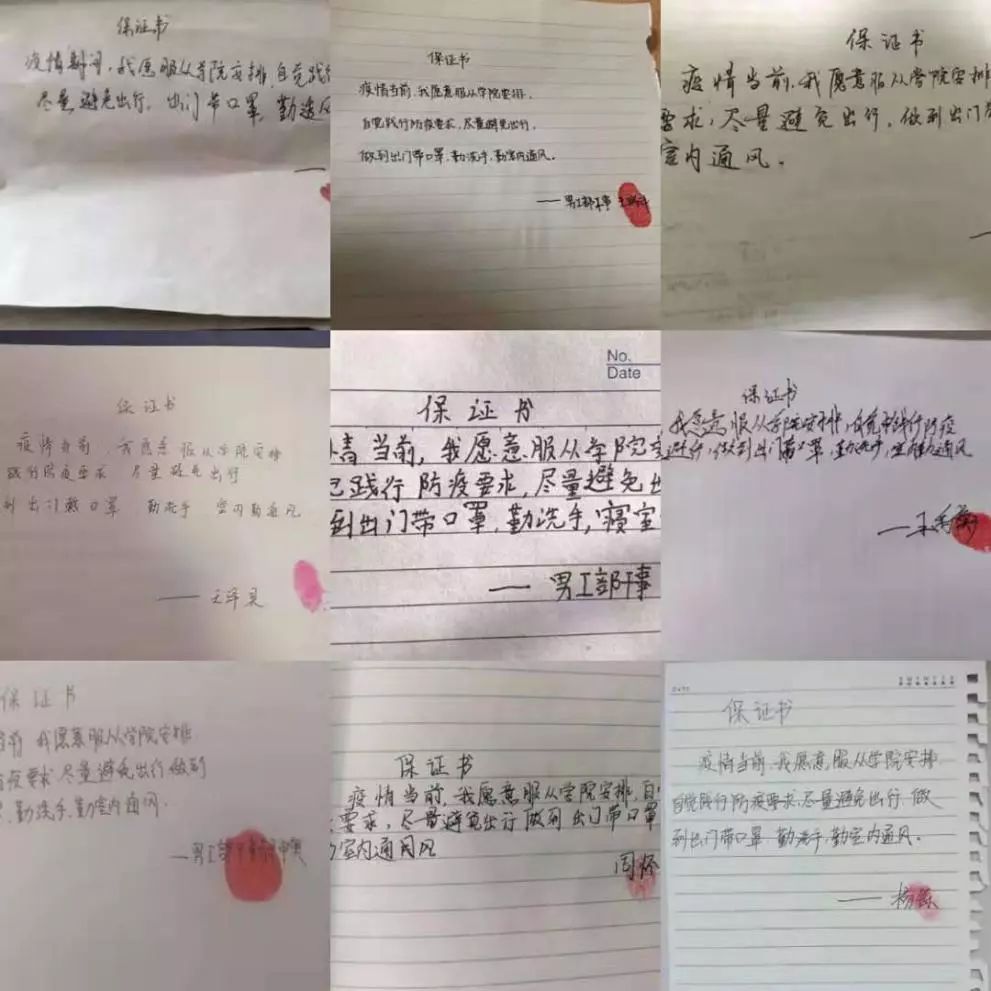 保证书
疫情期间,我愿服从学院安排,自觉践行
尽量避免出行,出门带口罩,勤
保证书
疫情当前,我愿意服从学院安排,
自觉践行防疫要求,尽量避免出行,
做到出门带口罩,勤洗手,勤室内通风。
——男工部干事
保证书
疫情当前,我愿意服从学院安排
要求,尽量避免出行,做到出门
室内通风。
保证书
疫情当前,我愿意服从学院安排
践行防疫要求 尽量避免出行
到出门戴口罩 勤洗手 室内勤通风
——王泽昊
No.
Date
保证书
情当前,我愿意服从学院安
己践行防疫要求,尽量避免出
到出门带口罩,勤洗手,寝室
——男工部干事
保证书
我愿意服从学院安排,自觉践行防疫
避行,做到出门带口罩,勤洗手,室通风
保证书
当前 我愿意服从学院安排
疫要求,尽量避免出行做到
勤洗手,勤室内通风.
——男工部干事
保证书
疫情当前,我愿意服从学院安排,自
要求,尽量避免出行做到出门带口罩
室内通风
周怀
保证书
疫情当前,我愿意服从学院安排
自觉践行防疫要求,尽量避免出行,做
到出门带口罩,勤洗手,勤室内通风。
——杨